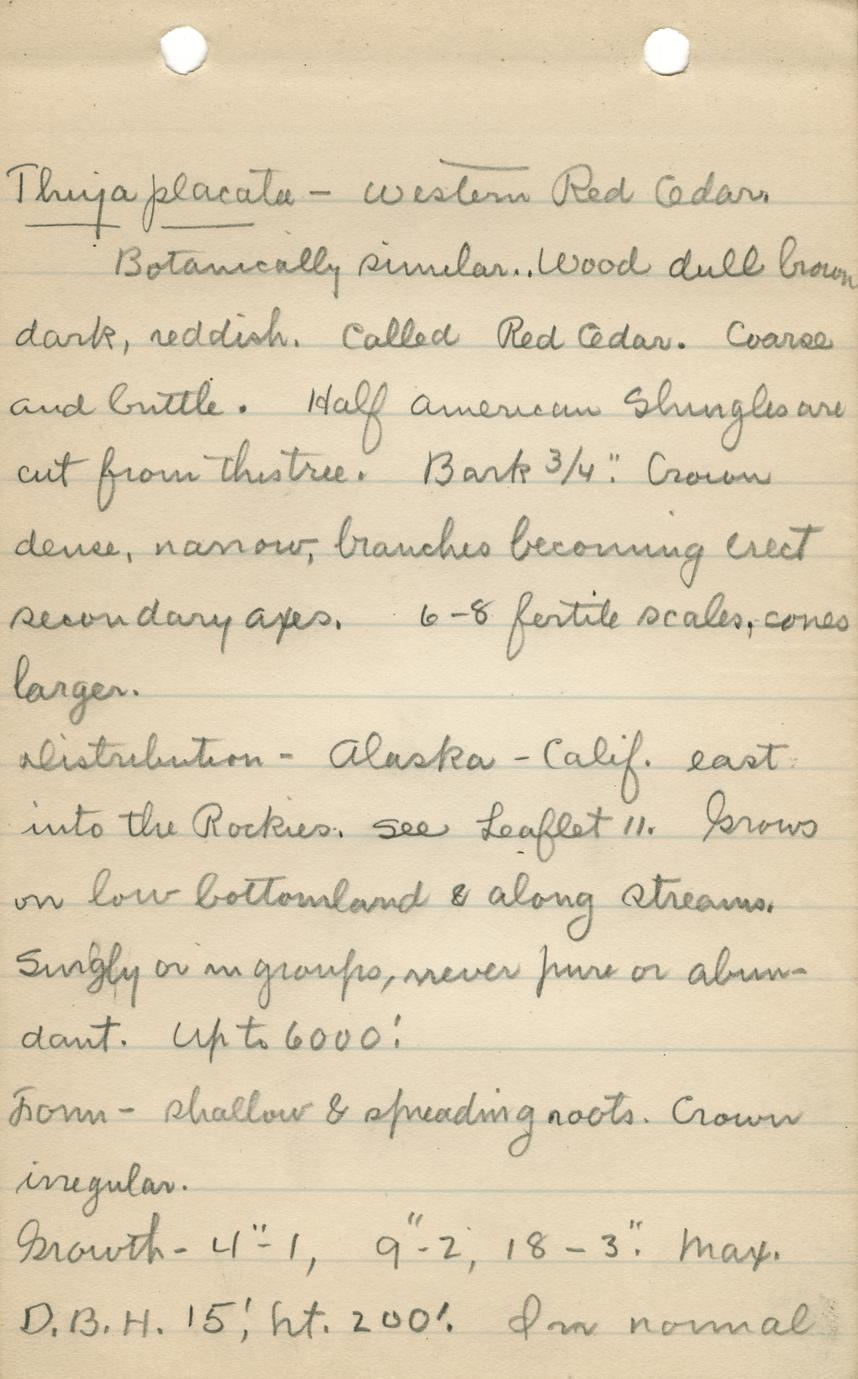 Thuja placata - Western Red Cedar.
Botanically similar.. Wood dull brown
dark, reddish. Called Red Cedar. Coarse
and brittle. Half American Shingles are
cut from this tree. Bark 3/4". Crown
dense, narrow, branches becoming erect
secondary axes. 6-8 fertile scales, cones
larger.
Distribution - Alaska - Calif. east
into the Rockies. See Leaflet 11. Grows
on low bottomland & along streams.
Singly or in groups, never pure or abun-
dant. Up to 6000'.
Form - shallow & spreading roots. Crown
irregular.
Growth - 4"-1, 9"-2, 18-3". Max.
D.B.H. 15', ht. 200'. In normal